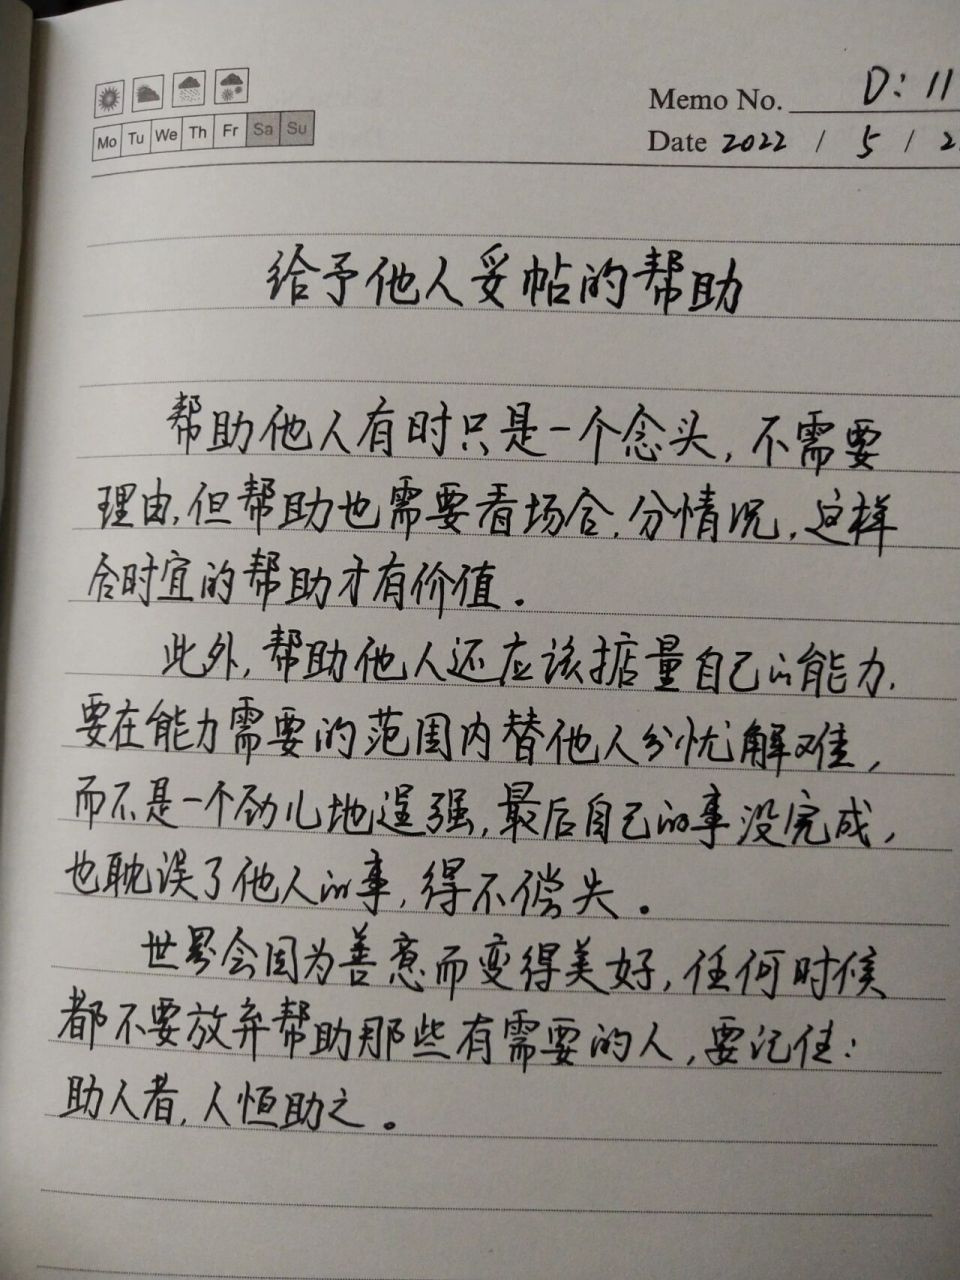 Memo No. D: 11
Mo Tu We Th Fr Sa Su
Date 2022 / 5 / 2
给予他人妥帖的帮助
帮助他人有时只是一个念头，不需要
理由，但帮助也需要看场合，分情况，这样
合时宜的帮助才有价值。
此外，帮助他人还应该掂量自己的能力，
要在能力需要的范围内替他人分忧解难，
而不是一个劲儿地逞强，最后自己的事没完成，
也耽误了他人的事，得不偿失。
世界会因为善意而变得美好，任何时候
都不要放弃帮助那些有需要的人，要记住：
助人者，人恒助之。